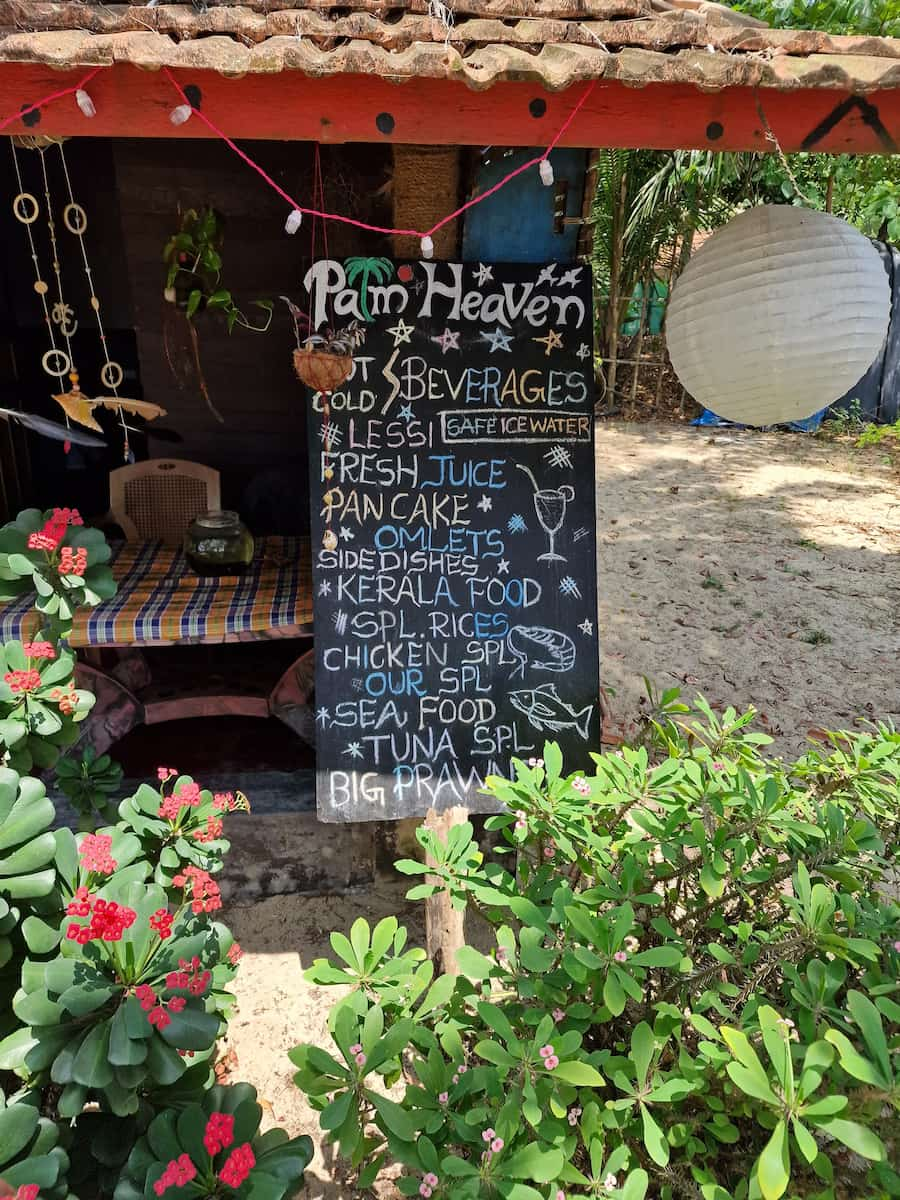 Palm Heaven
HOT
COLD
BEVERAGES
LESSI
SAFE ICE WATER
FRESH JUICE
PANCAKE
OMLETS
SIDE DISHES
KERALA FOOD
SPL. RICES
CHICKEN SPL
OUR SPL
SEA FOOD
TUNA SPL
BIG PRAWN